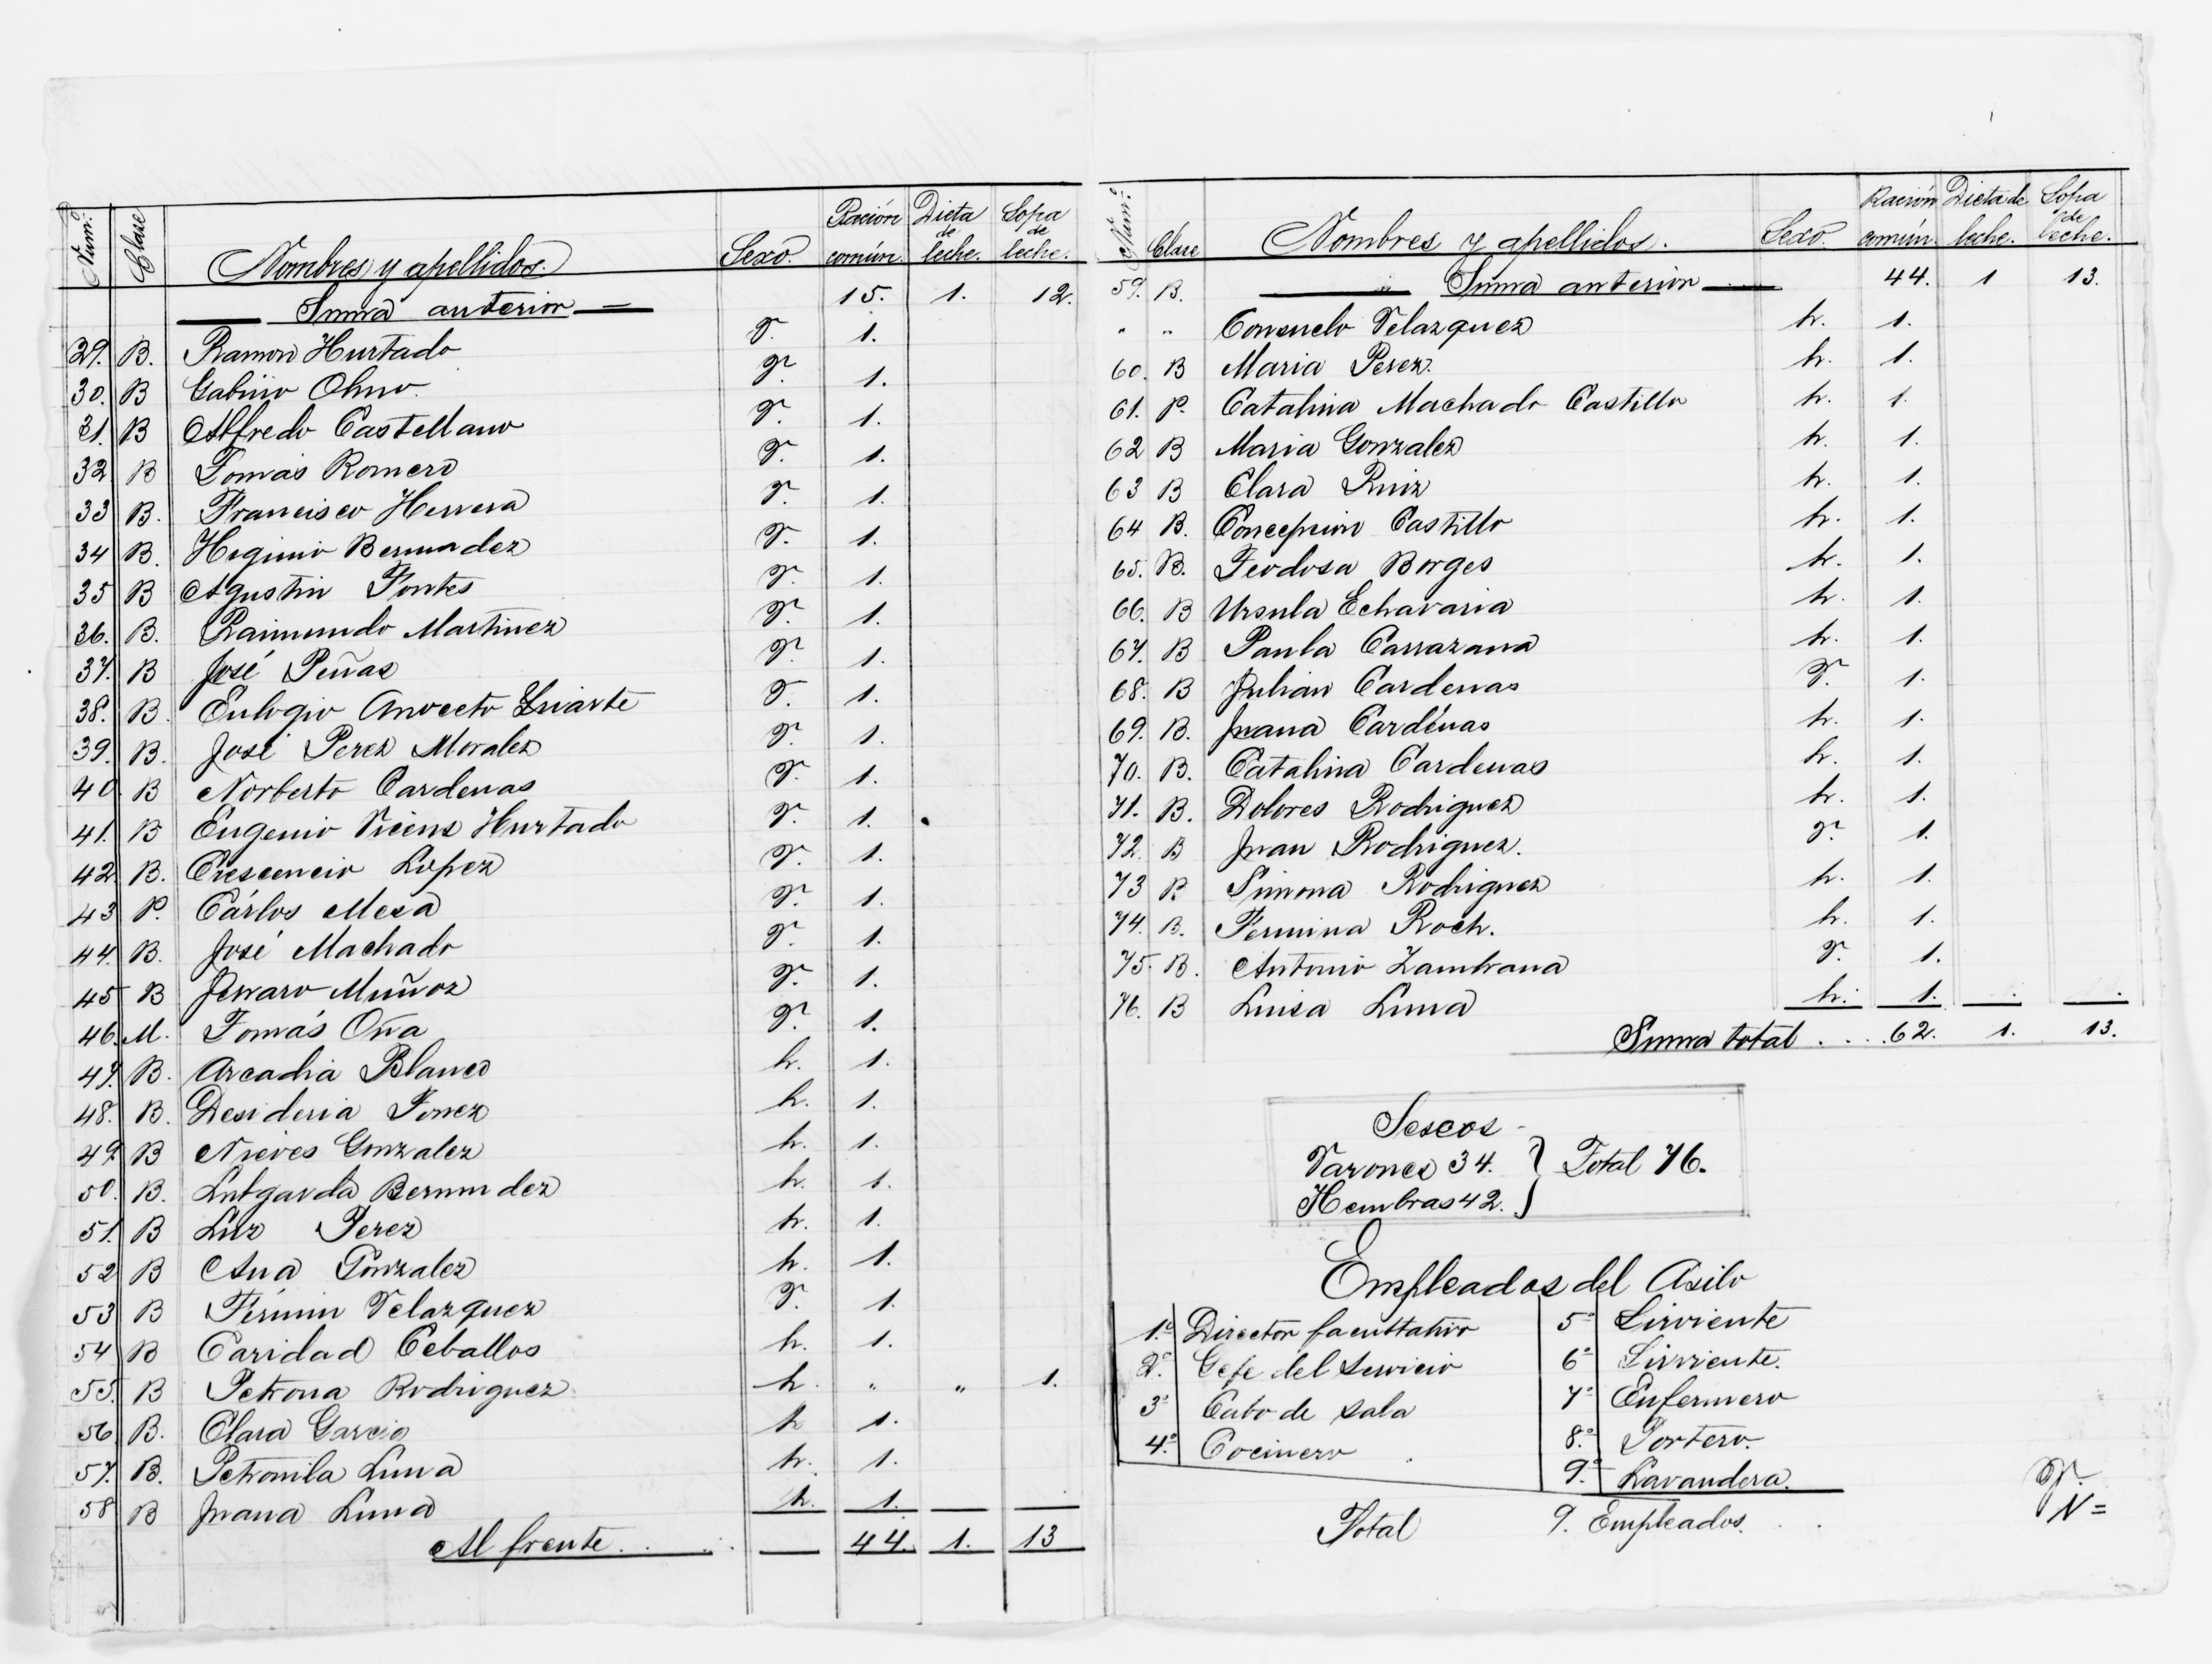 Núm.º Clase Nombres y apellidos. Sexo. Ración común. Dieta de leche. Sopa de leche.
Suma anterior 15. 1. 12.
29. B. Ramon Hurtado V. 1.
30. B Gabino Olmo. V. 1.
31. B Alfredo Castellano V. 1.
32 B Tomás Romero V. 1.
33 B. Francisco Herrera V. 1.
34 B. Higinio Bermudez V. 1.
35 B Agustin Fontes V. 1.
36. B. Raimundo Martinez V. 1.
37. B José Peñas V. 1.
38. B. Eulogio Anoceto Iriarte V. 1.
39. B. José Perez Morales V. 1.
40. B Norberto Cardenas V. 1.
41. B Eugenio Vicens Hurtado V. 1.
42 B. Crescencio Lopez V. 1.
43 P. Cárlos Mesa V. 1.
44. B. José Machado V. 1.
45 B Jenaro Muñoz V. 1.
46. M. Tomás Oña V. 1.
47. B. Arcadia Blanco h. 1.
48. B. Desideria h. 1.
49. B Nieves Gonzalez h. 1.
50. B. Lutgarda Bermudez h. 1.
51. B Luz Perez h. 1.
52 B Ana Gonzalez h. 1.
53 B Fermin Velazquez V. 1.
54 B Caridad Ceballos h. 1.
55. B Petrona Rodriguez h. " " 1.
56 B. Clara Garcia h 1.
57. B. Petronila Luna h. 1.
58 B Juana Luna h. 1.
Al frente 44. 1. 13
Núm.º Clase Nombres y apellidos. Sexo. Ración común. Dieta de leche. Sopa de leche.
59. B. Suma anterior 44. 1 13.
" " Consuelo Velazquez h. 1.
60. B Maria Perez. h. 1.
61. P. Catalina Machado Castillo h. 1.
62 B Maria Gonzalez h. 1.
63 B Clara Ruiz h. 1.
64 B. Concepcion Castillo h. 1.
65. B. Teodosa Borges h. 1.
66. B Ursula Echavaria h. 1.
67. B Paula Carrazana h. 1.
68. B Julian Cardenas V. 1.
69. B. Juana Cardénas h. 1.
70. B. Catalina Cardenas h. 1.
71. B. Dolores Rodriguez h. 1.
72. B Juan Rodriguez. V. 1.
73 B Simona Rodriguez h. 1.
74. B. Fermina Roch. h. 1.
75. B. Antonio Zambrana V. 1.
76. B Luisa Luna h. 1.
Suma total . . . . 62. 1. 13.
Secsos
Varones 34.
Hembras 42.
Total 76.
Empleados del Asilo
1.º Director facultativo 5º Sirviente
2.º Gefe del servicio 6º Sirviente.
3º Cabo de sala 7º Enfermero
4.º Cocinero 8.º Portero.
9.º Lavandera.
Total 9. Empleados.